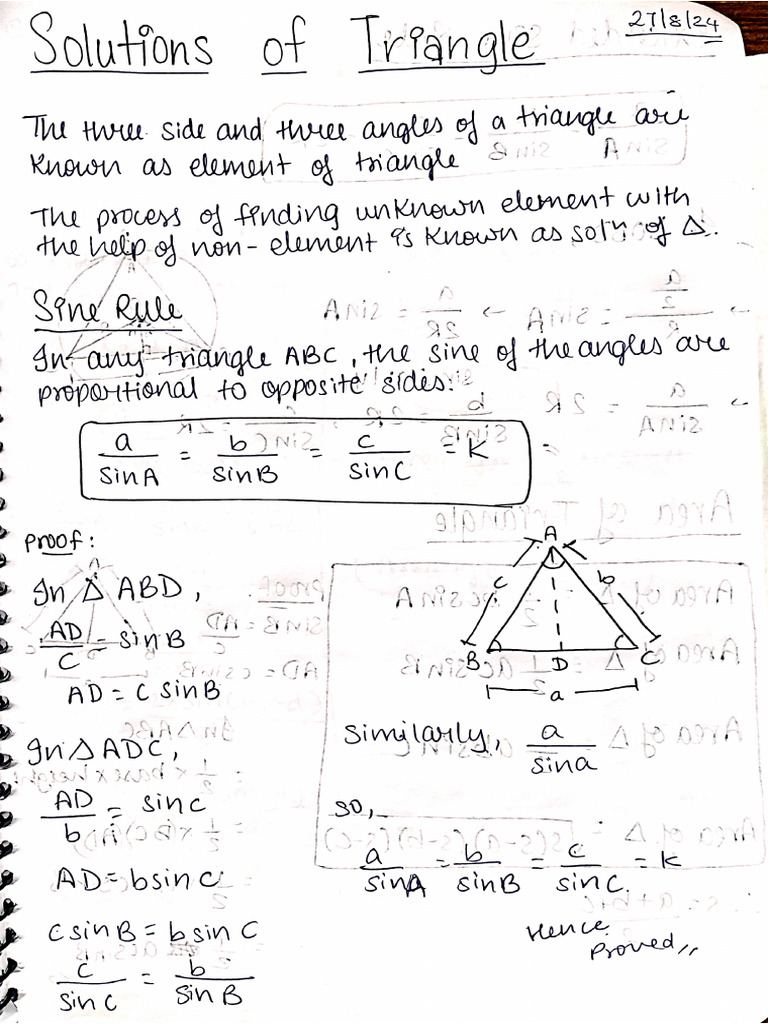 27/8/24
Solutions of Triangle
The three side and three angles of a triangle are
known as element of triangle
The process of finding unknown element with
the help of non-element is known as solⁿ of Δ.
Sine Rule
In any triangle ABC, the sine of the angles are
proportional to opposite sides.
a/sinA = b/sinB = c/sinC = K
Proof:
In Δ ABD,
AD/c = sinB
AD = c sinB
In Δ ADC,
AD/b = sinc
AD = bsinc
csinB = bsinC
c/sinC = b/sinB
A
c
b
B
D
C
a
Similarly, a/sina
so,
a/sinA = b/sinB = c/sinC = K
Hence
Proved,,